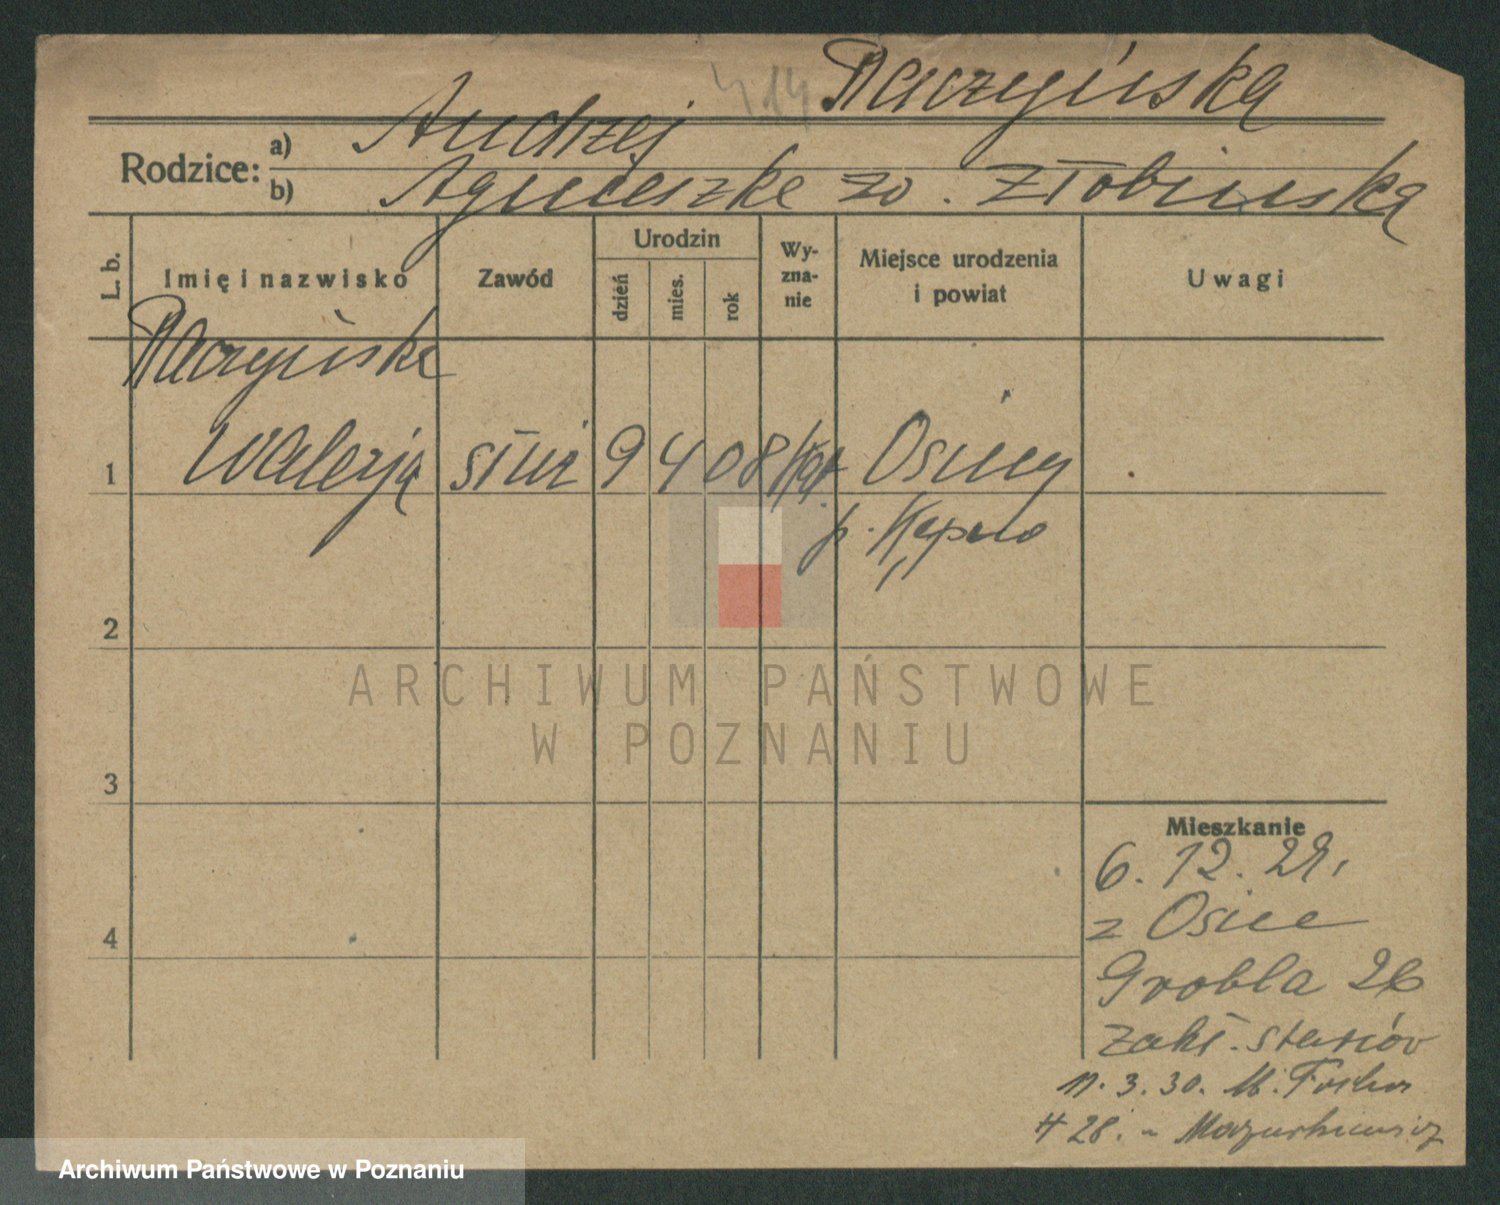 Raczyńska
Rodzice: a) Andrzej
b) Agnieszka zd. Złobińska
L. b.
Imię i nazwisko
Zawód
Urodzin
dzień
mies.
rok
Wy-
zna-
nie
Miejsce urodzenia
i powiat
Uwagi
Raczyńska
1 Walerja służ 9 4 08 kat Osiny
p. Kępno
2
3
4
Mieszkanie
6. 12. 29.
z Osin
Grobla 26
zakł. starców
11. 3. 30. M. Focha
28.
ARCHIWUM PAŃSTWOWE
W POZNANIU
Archiwum Państwowe w Poznaniu